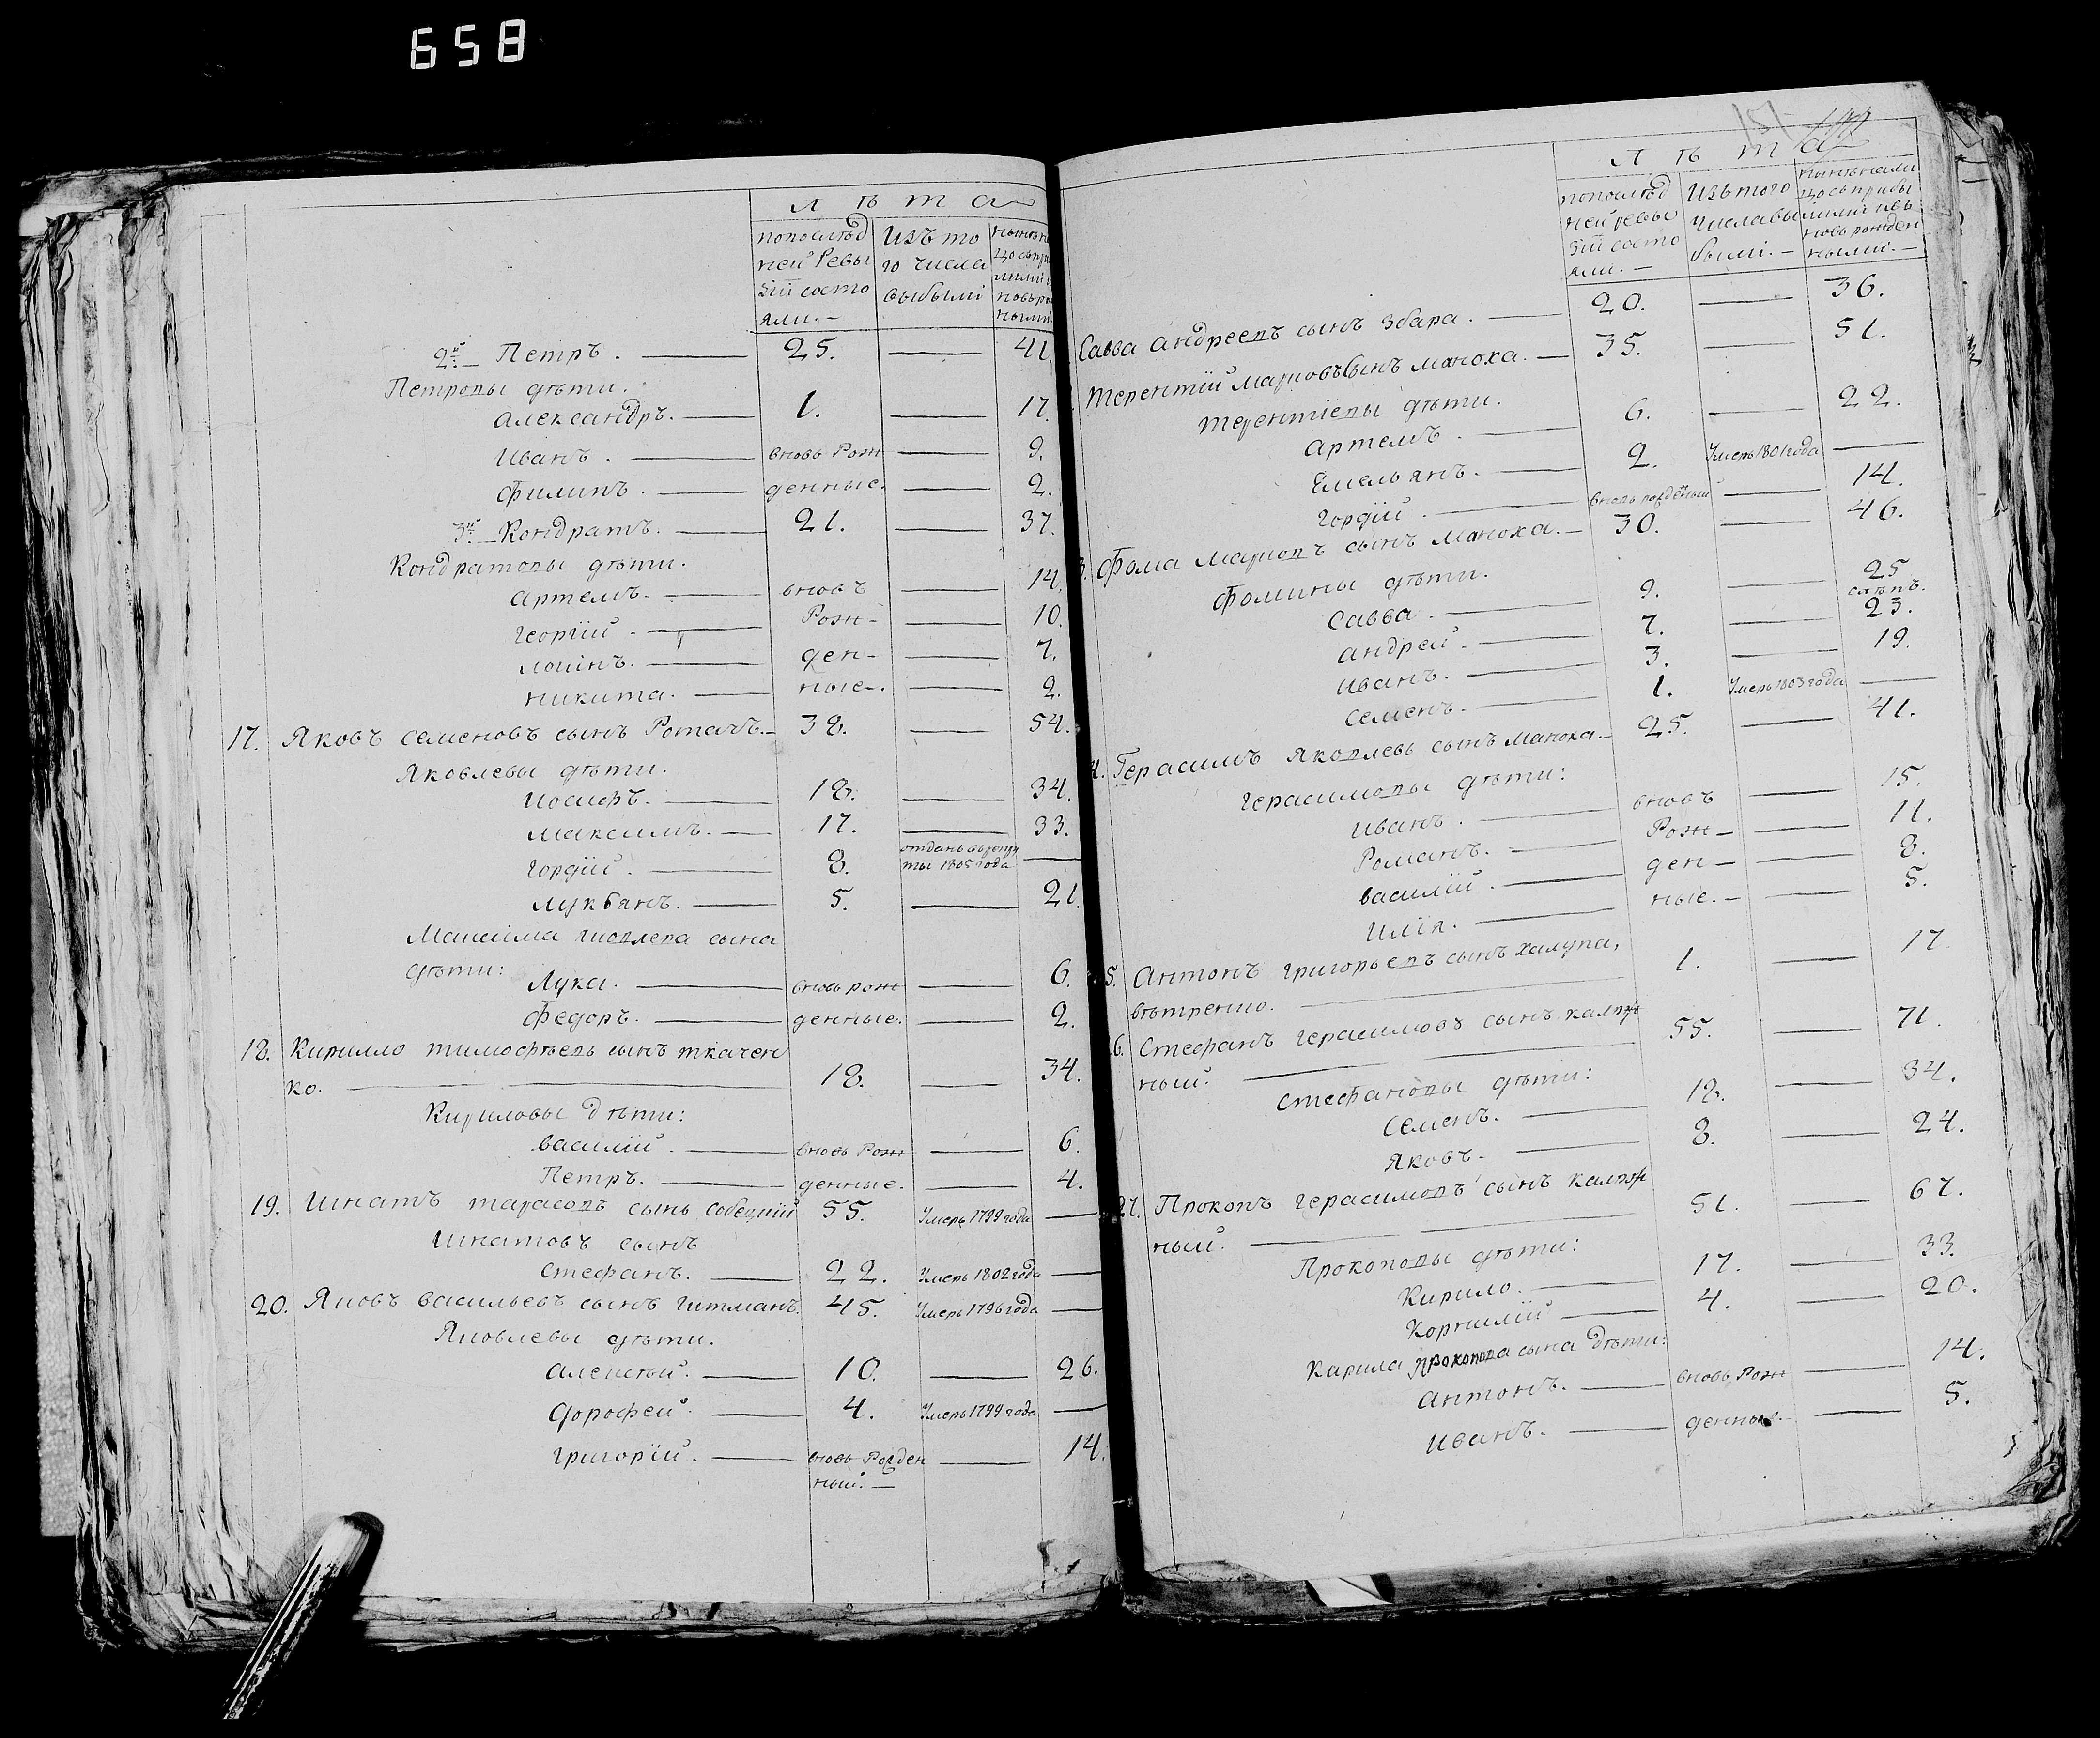 658
л ѣ т а
попослѣд ней Ревы зіи состо яли. —
Изъ то го числа выбыли
2й. Петръ. — 25. — 41.
Петровы дѣти.
Александръ. — 1. — 17.
Иванъ. — вновь Рож — 9.
Филипъ. — денные. — 2.
3й. Кондратъ. — 21. — 37.
Кондратовы дѣти.
Артемъ. — вновъ — 14.
Георгій. — Рож- — 10.
Логинъ. — ден- — 7.
Никита. — ные-. — 2.
17. Яковъ Семеновъ сынъ Ротачъ. — 38. — 54.
Яковлевы дѣти.
Иосифъ. — 18. — 34.
Максимъ. — 17. — 33.
Гордій. — 8. отданъ врекру ты 1805 года —
Лукъянъ. — 5. — 21.
Максима Яковлева сына
дѣти:
Лука. — вновь рож — 6.
Федоръ. — денные. — 2.
18. Кирилло Тимофѣевъ сынъ Ткачен
ко. — 18. — 34.
Кириловы дѣти:
Василій. — вновь Рож — 6.
Петръ. — денные. — 4.
19. Игнатъ Тарасовъ сынъ Собецкій 55. Умеръ 1799 года —
Игнатовъ сынъ
Стефанъ. — 22. Умеръ 1802 года —
20. Яковъ Васильевъ сынъ Гитманъ. 45. Умеръ 1796 года —
Яковлевы дѣти.
Алексѣй. — 10. — 26.
Дорофей. — 4. Умеръ 1799 года —
Григорій. — вновь Рожден — 14.
ный. —
151
л ѣ т а
попослѣд ней ревы зіи состо яли. —
Изъ того числа вы были. —
Савва Андреевъ сынъ Збара. — 20. — 36.
Терентій Марковъ сынъ Манока. — 35. — 51.
Терентіевы дѣти.
Артемъ. — 6. — 22.
Емельянъ. — 2. Умеръ 1801 года —
Гордій. — вновь рожденый — 14.
3. Фома Марковъ сынъ Манока. — 30. — 46.
Фомины дѣти.
Савва. — 9. — 25
слѣпъ.
Андрей. — 7. — 23.
Иванъ. — 3. — 19.
Семенъ. — 1. Умеръ 1803 года —
4. Герасимъ Яковлевъ сынъ Манока. — 25. — 41.
Герасимовы дѣти:
Иванъ. — вновъ — 15.
Романъ. — Рож- — 11.
Василій. — ден- — 8.
Илія. — ные. — 5.
5. Антонъ Григорьевъ сынъ Халупа, 1. — 17
вѣтренно. —
6. Стефанъ Герасимовъ сынъ Калюж 55. — 71.
ный. —
Стефановы дѣти:
Семенъ. — 18. — 34.
Яковъ. — 8. — 24.
27. Прокопъ Герасимовъ сынъ Калюж 51. — 67.
ный. —
Прокоповы дѣти:
Кирило. — 17. — 33.
Корнилій — 4. — 20.
Кирила Прокопова сына Дѣти:
Антонъ. — вновь Рож — 14.
Иванъ. — денные. — 5.